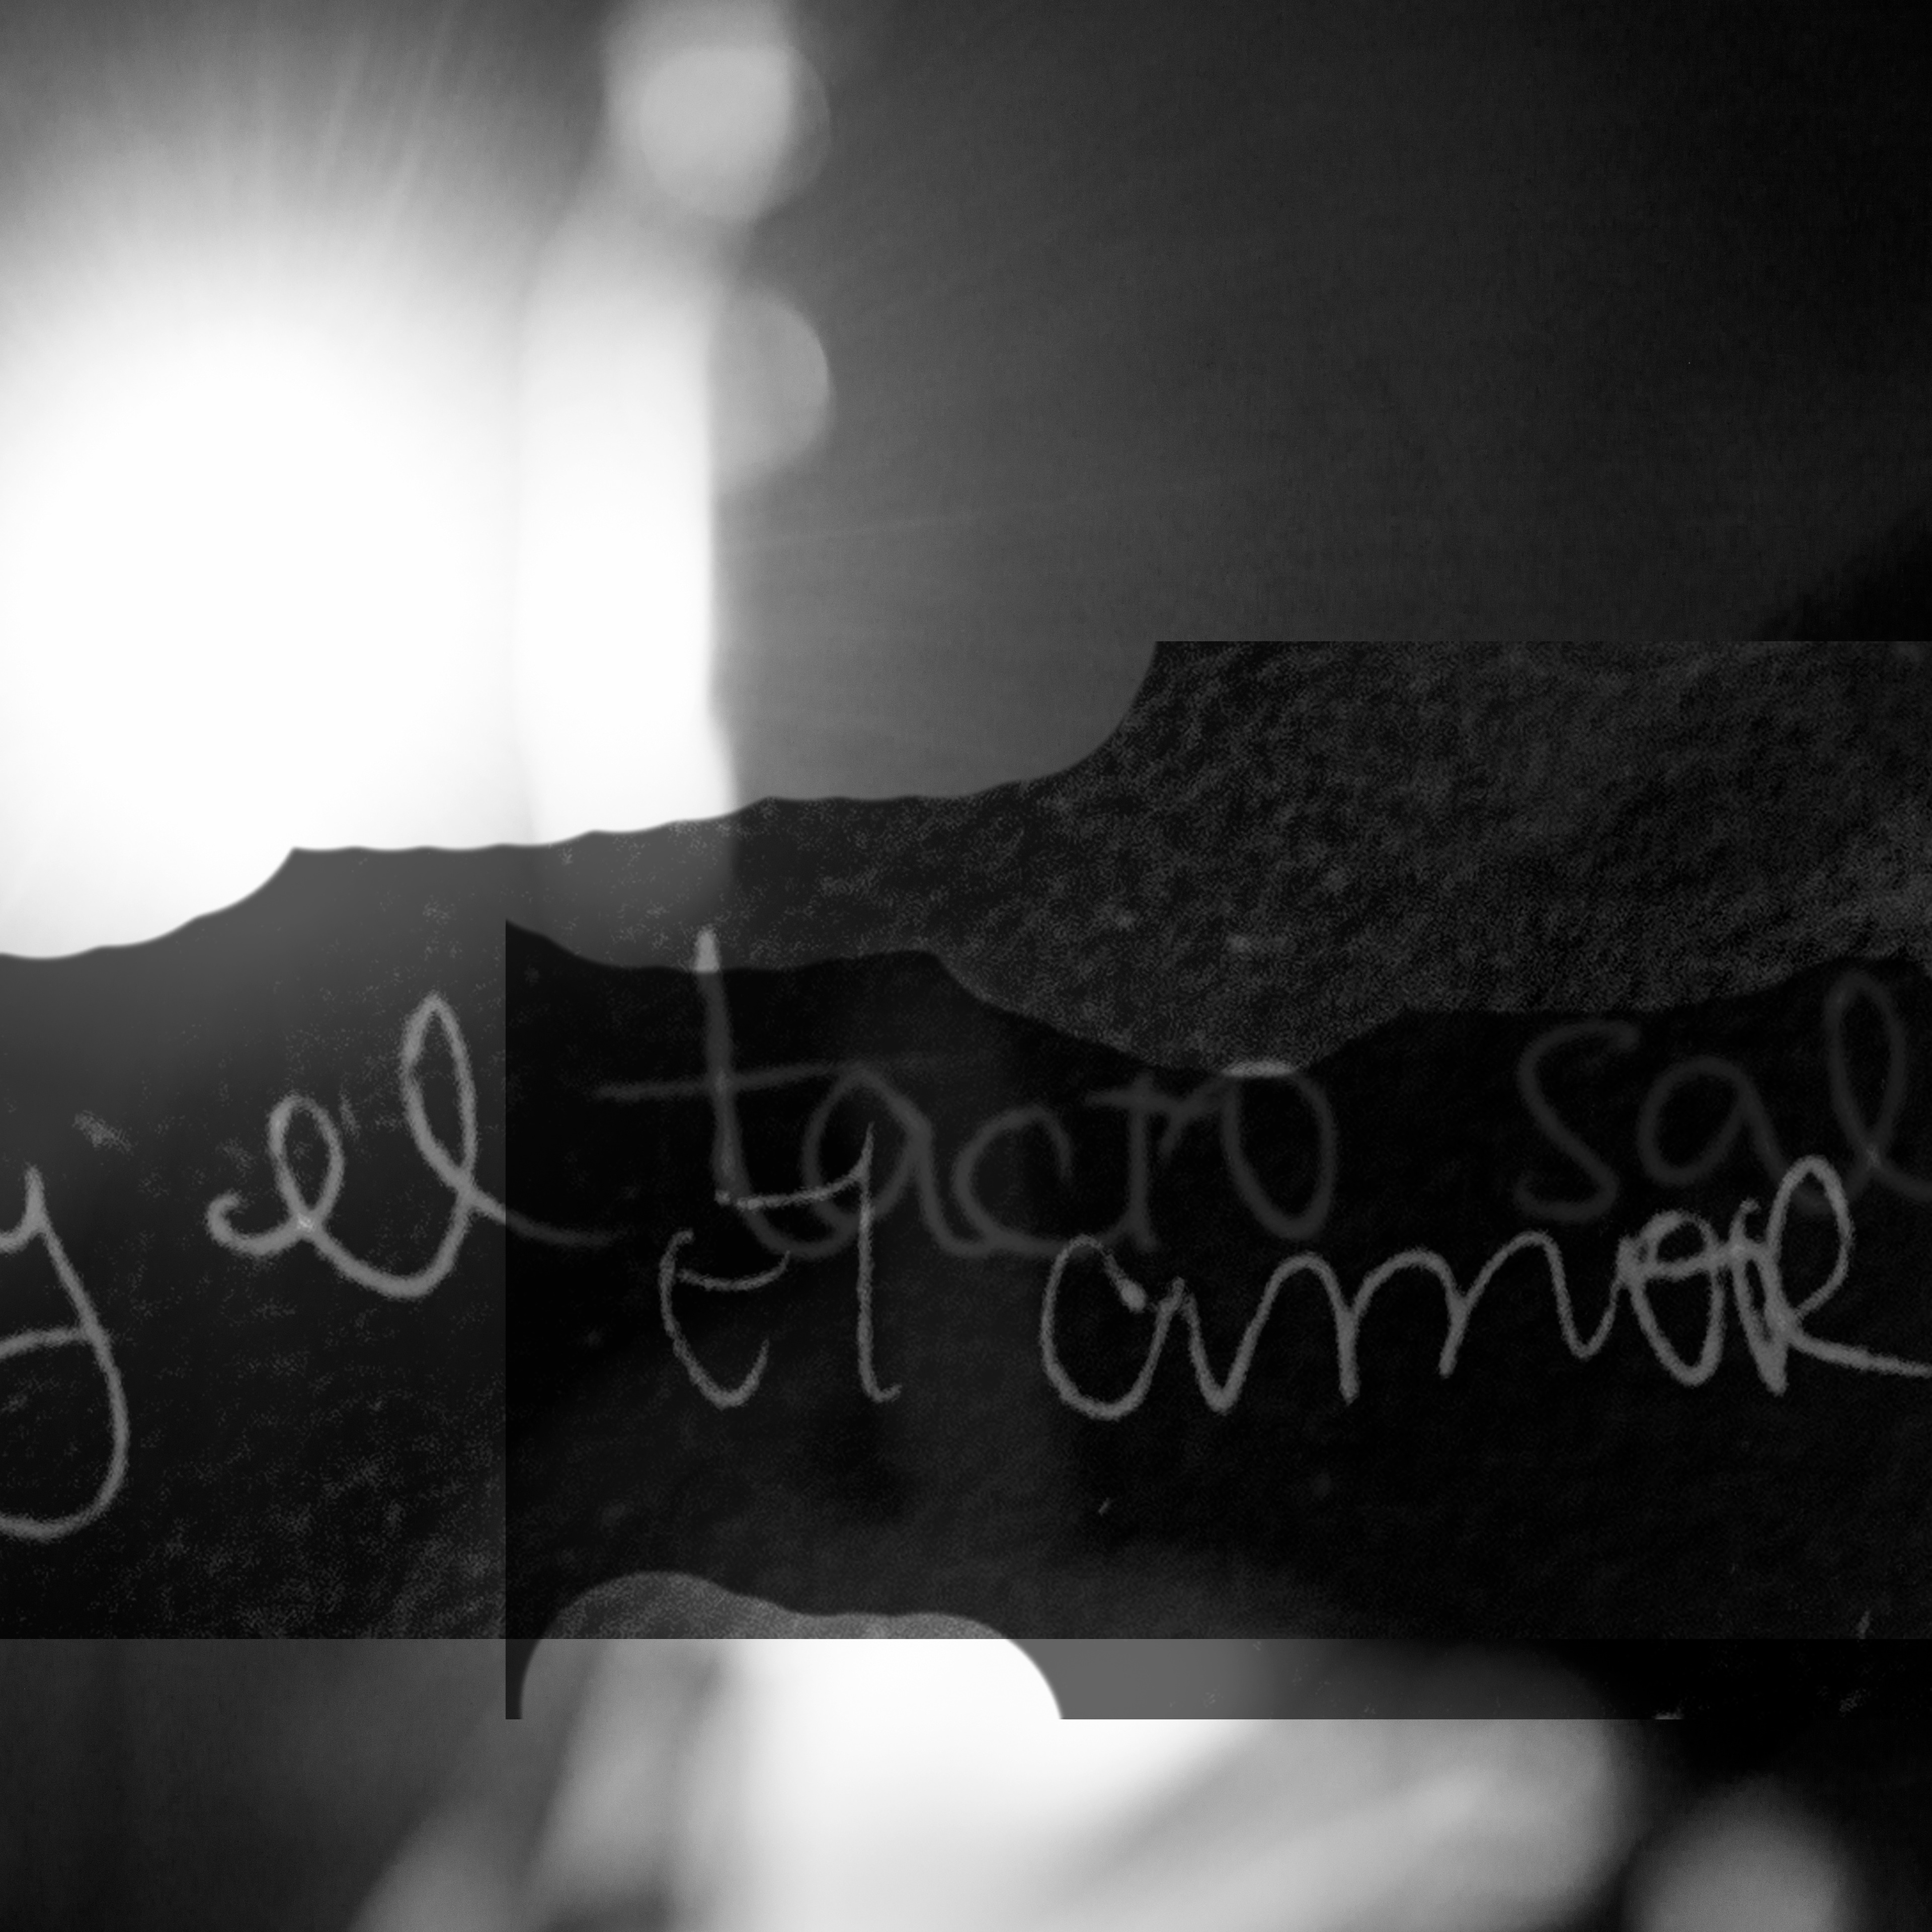 y el tacto sal
el amor